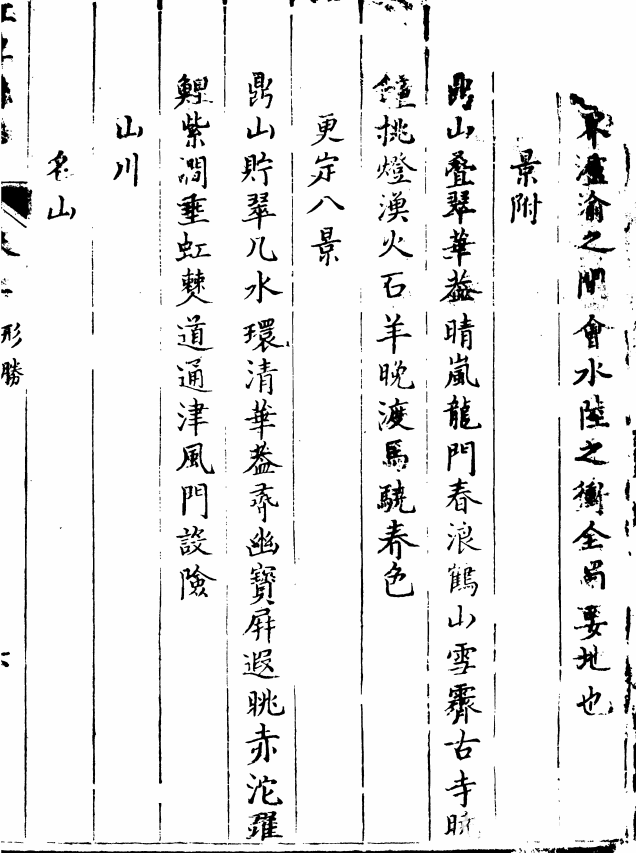 東瀘渝之間會水陸之衝全蜀要地也
景附
鼎山叠翠華葢晴嵐龍門春浪鶴山雪霽古寺晚
鐘挑燈漢火石羊晚渡馬驍春色
更定八景
鼎山貯翠几水環清華葢尋幽寶屏遐眺赤沱躍
鯉紫澗垂虹僰道通津風門設險
山川
名山
形勝